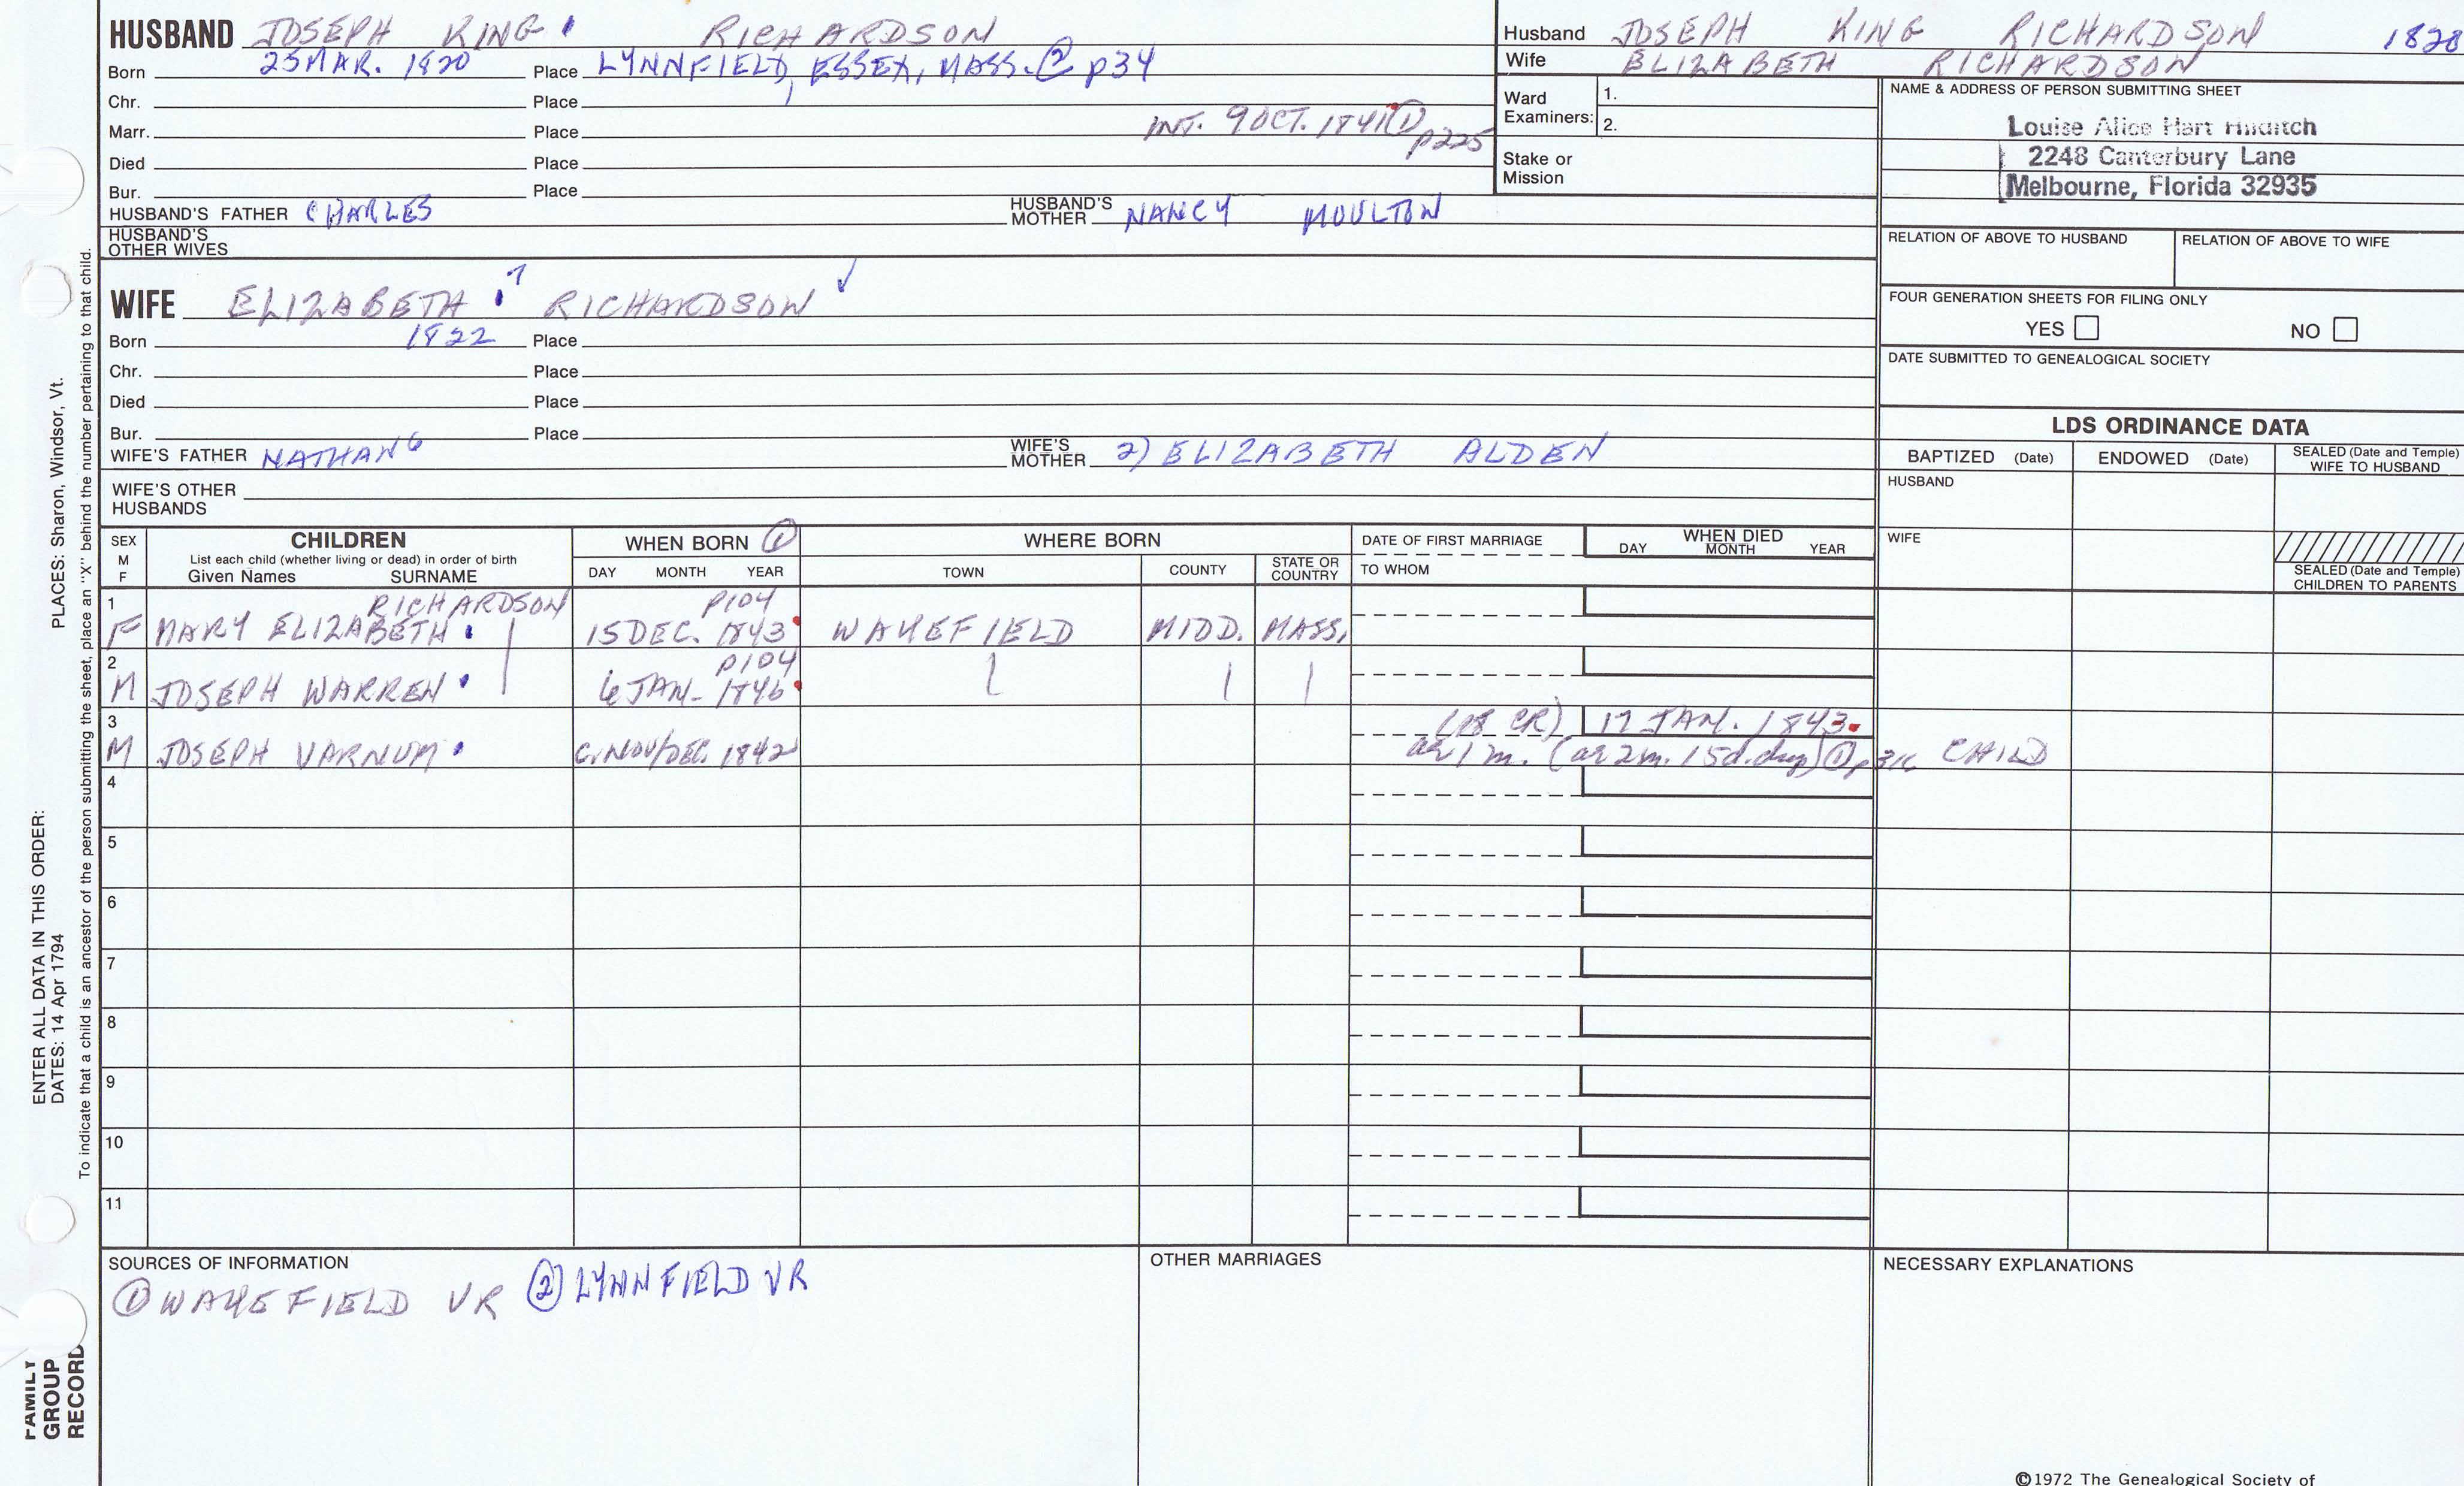 HUSBAND JOSEPH KING RICHARDSON
Born 25 MAR. 1820 Place LYNNFIELD, ESSEX, MASS. ② p34
Chr. Place
Marr. Place INT. 9 OCT. 1841 ① p225
Died Place
Bur. Place
HUSBAND'S FATHER CHARLES HUSBAND'S MOTHER NANCY MOULTON
HUSBAND'S OTHER WIVES
Husband JOSEPH KING RICHARDSON
Wife ELIZABETH RICHARDSON
Ward Examiners: 1.
2.
Stake or Mission
NAME & ADDRESS OF PERSON SUBMITTING SHEET
Louise Alice Hart
2248 Canterbury Lane
Melbourne, Florida 32935
RELATION OF ABOVE TO HUSBAND RELATION OF ABOVE TO WIFE
FOUR GENERATION SHEETS FOR FILING ONLY
YES NO
DATE SUBMITTED TO GENEALOGICAL SOCIETY
WIFE ELIZABETH RICHARDSON
Born 1822 Place
Chr. Place
Died Place
Bur. Place
WIFE'S FATHER NATHAN 6 WIFE'S MOTHER 2) ELIZABETH ALDEN
WIFE'S OTHER HUSBANDS
LDS ORDINANCE DATA
BAPTIZED (Date) ENDOWED (Date) SEALED (Date and Temple) WIFE TO HUSBAND
HUSBAND
WIFE
SEALED (Date and Temple) CHILDREN TO PARENTS
SEX M F
CHILDREN
List each child (whether living or dead) in order of birth
Given Names SURNAME
WHEN BORN ①
DAY MONTH YEAR
WHERE BORN
TOWN COUNTY STATE OR COUNTRY
DATE OF FIRST MARRIAGE
TO WHOM
WHEN DIED
DAY MONTH YEAR
1 RICHARDSON p104
F MARY ELIZABETH 15 DEC. 1843 WAKEFIELD MIDD. MASS.
2 p104
M JOSEPH WARREN 6 JAN. 1846
3 17 JAN. 1843
M JOSEPH VARNUM c. NOV/DEC. 1842 ae 1 m. (ae 2 m. 15 d. dup) ① CHILD
4
5
6
7
8
9
10
11
SOURCES OF INFORMATION
① WAKEFIELD VR ② LYNNFIELD VR
OTHER MARRIAGES
NECESSARY EXPLANATIONS
©1972 The Genealogical Society of
ENTER ALL DATA IN THIS ORDER:
DATES: 14 Apr 1794 PLACES: Sharon, Windsor, Vt.
To indicate that a child is an ancestor of the person submitting the sheet, place an "X" behind the number pertaining to that child.
FAMILY
GROUP
RECORD